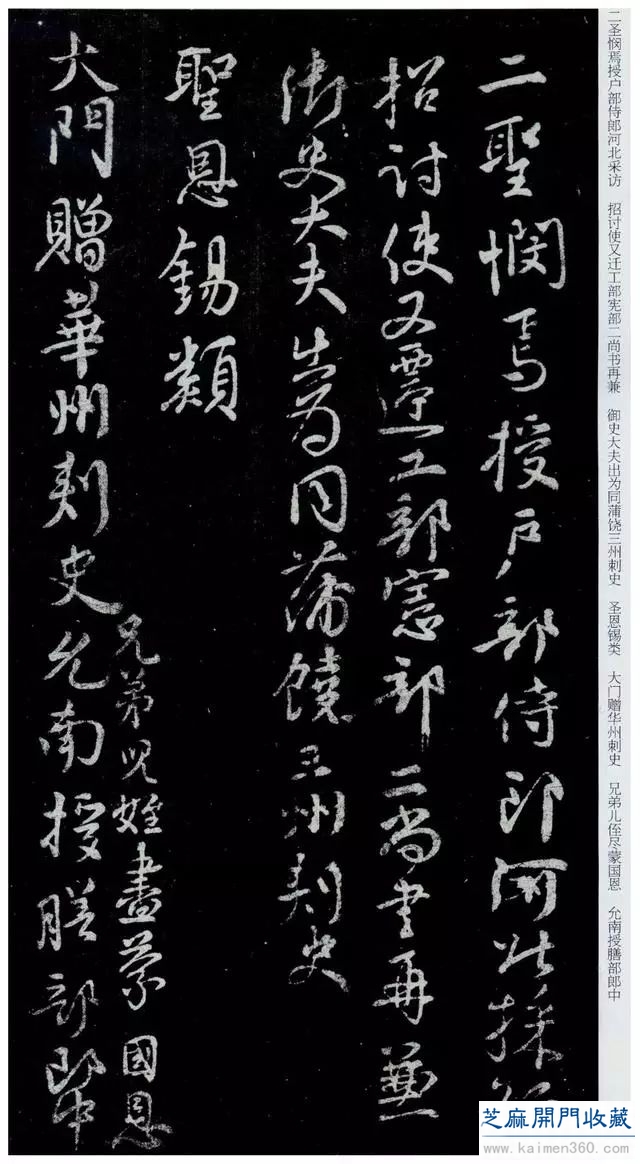 二聖憫焉授戶部侍郎河北採訪
招討使又遷工部憲部二尚書再兼
御史大夫出為同蒲饒三州刺史
聖恩錫類
大門贈華州刺史允南授膳部郎中
兄弟児姪盡蒙國恩
二圣悯焉授户部侍郎河北采访 招讨使又迁工部宪部二尚书再兼 御史大夫出为同蒲饶三州刺史 圣恩锡类 大门赠华州刺史 兄弟儿侄尽蒙国恩 允南授膳部郎中
芝麻開門收藏
www.kaimen360.com